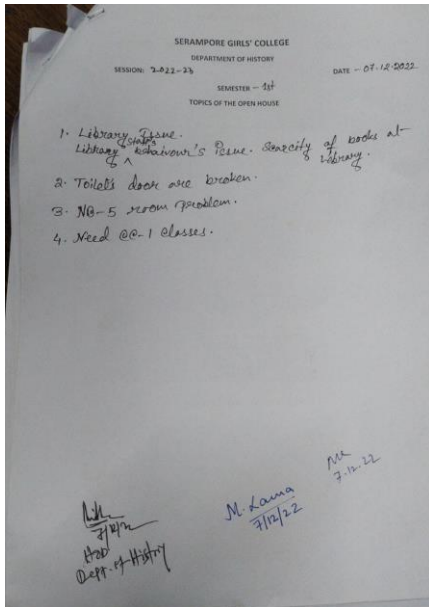 SERAMPORE GIRLS' COLLEGE
DEPARTMENT OF HISTORY
SESSION: 2022-23 DATE - 07-12-2022
SEMESTER - 1st
TOPICS OF THE OPEN HOUSE
1. Library Issue.
Library staff's behaivour's Issue. Scarcity of books at Library.
2. Toilet's door are broken.
3. NB-5 room problem.
4. Need CC-1 classes.
7/12/22
HOD
Dept. of History
M. Lama
7/12/22
7.12.22